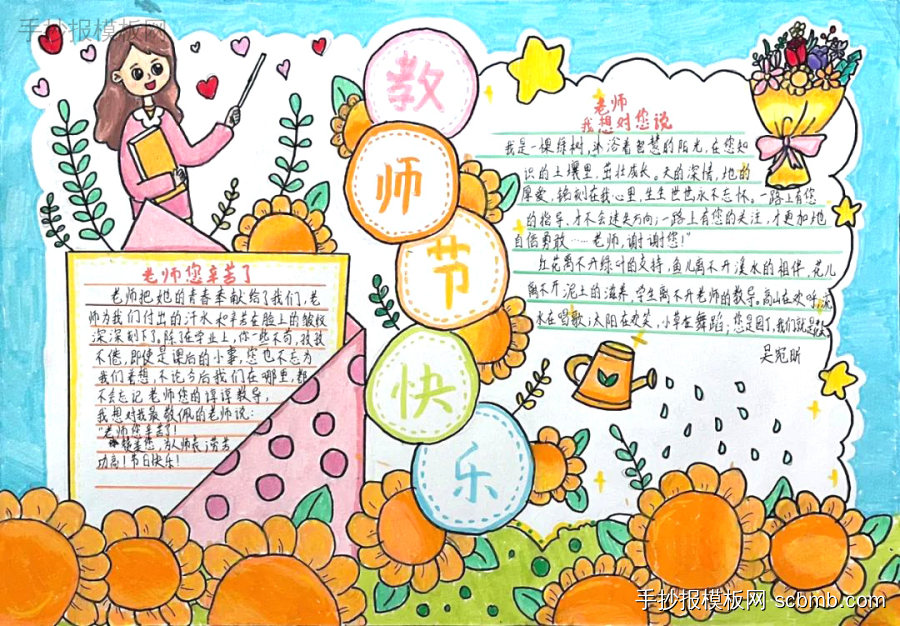 手抄报模板网
教
师
节
快
乐
老师您辛苦了
老师把她的青春奉献给了我们，老
师为我们付出的汗水和辛苦在脸上的皱纹
深深刻下了。除在学业上，你一丝不苟，孜孜
不倦，即使是课后的小事，您也不忘为
我们着想，不论今后我们在哪里，都
不会忘记老师您的谆谆教导，
我想对我最敬佩的老师说：
“老师您辛苦了！
您，为人师表；劳苦
功高！节日快乐！
老师
我想对您说
我是一棵绿树，沐浴着智慧的阳光，在您知
识的土壤里，茁壮成长。天的深情，地的
厚爱，铭刻在我心里，生生世世永不忘怀。一路上有您
的指导，才不会迷失方向；一路上有您的关注，才更加地
自信勇敢……老师，谢谢您！”
红花离不开绿叶的支持，鱼儿离不开溪水的相伴，花儿
离不开泥土的滋养，学生离不开老师的教导。高山在欢呼，流
水在唱歌；太阳在欢笑，小草在舞蹈；您是园丁，我们就是花
吴
手抄报模板网 scbmb.com